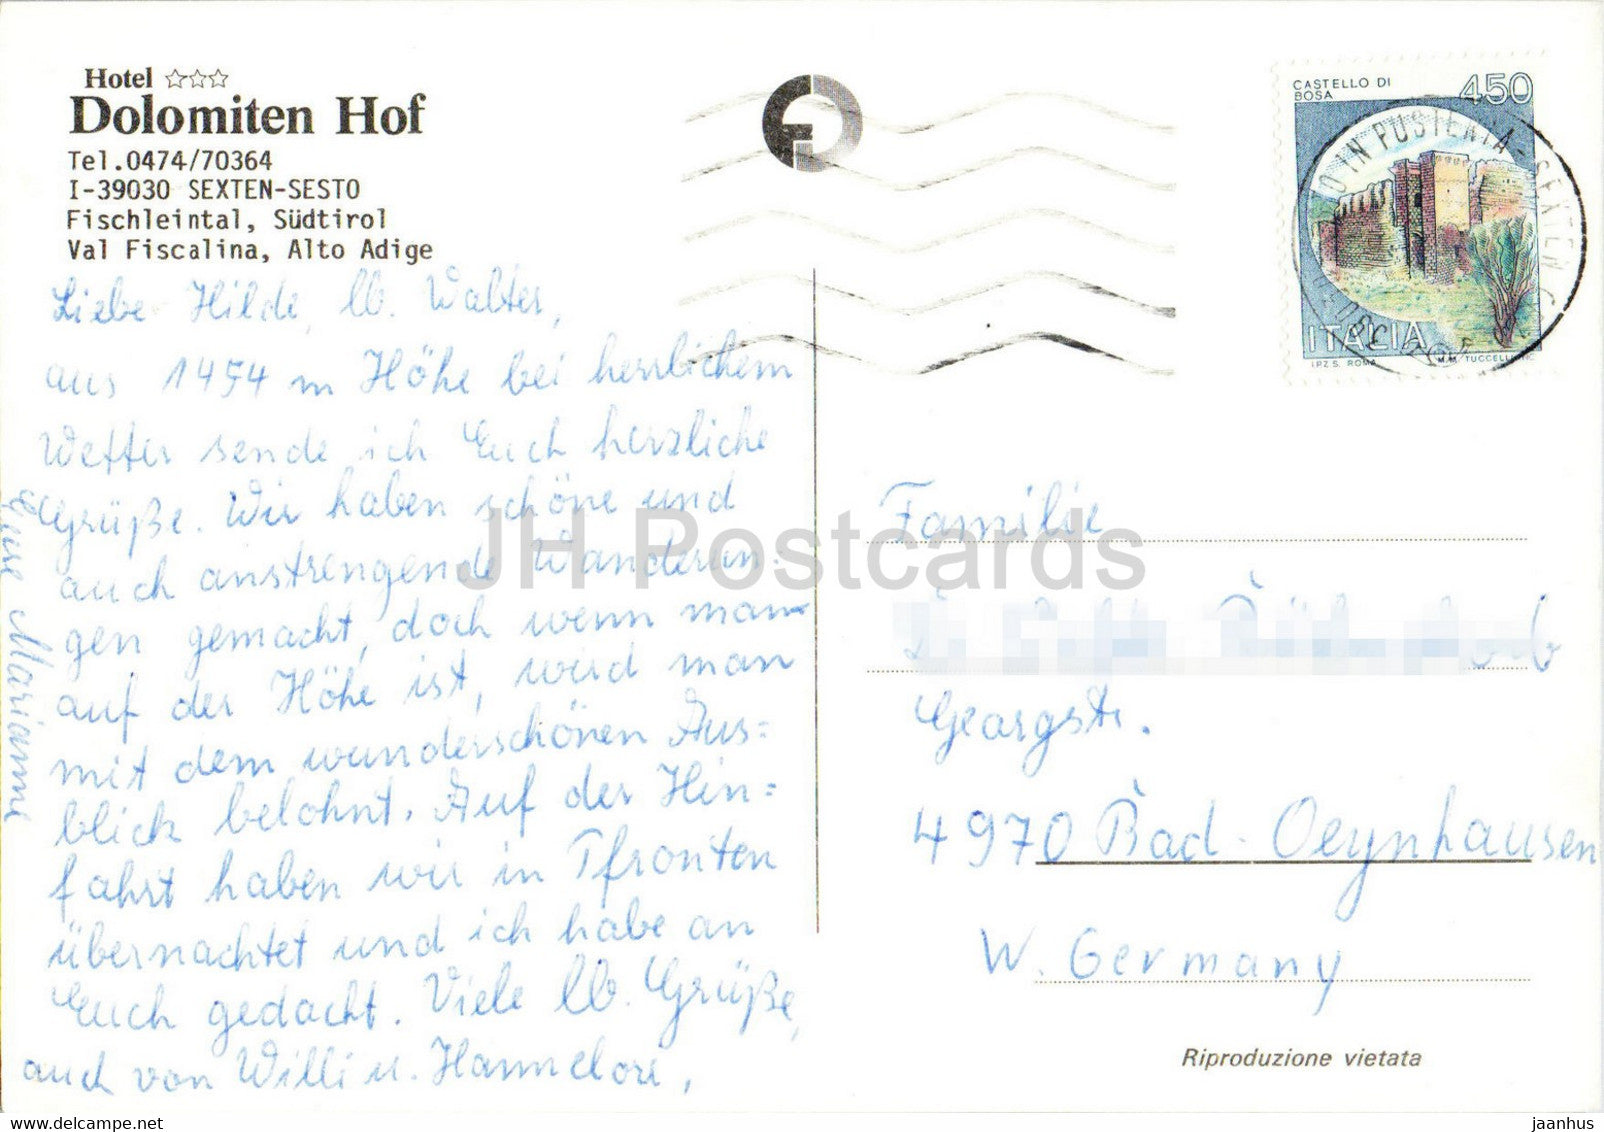 Hotel ☆☆☆
Dolomiten Hof
Tel.0474/70364
I-39030 SEXTEN-SESTO
Fischleintal, Südtirol
Val Fiscalina, Alto Adige
Liebe Hilde, lb. Walter,
aus 1454 m Höhe bei herrlichem
Wetter sende ich Euch herzliche
Grüße. Wir haben schöne und
auch anstrengende Wanderun-
gen gemacht, doch wenn man
auf der Höhe ist, wird man
mit dem wunderschönen Aus=
blick belohnt. Auf der Hin=
fahrt haben wir in Pfronten
übernachtet und ich habe an
Euch gedacht. Viele lb. Grüße,
auch von Willi u. Hannelore,
Eure Marianne
CASTELLO DI
BOSA
450
ITALIA
I.P.Z.S. ROMA
SEXTEN
Familie
Georgstr.
4970 Bad-Oeynhausen
W. Germany
Riproduzione vietata
JH Postcards
delcampe.net
jaanhus